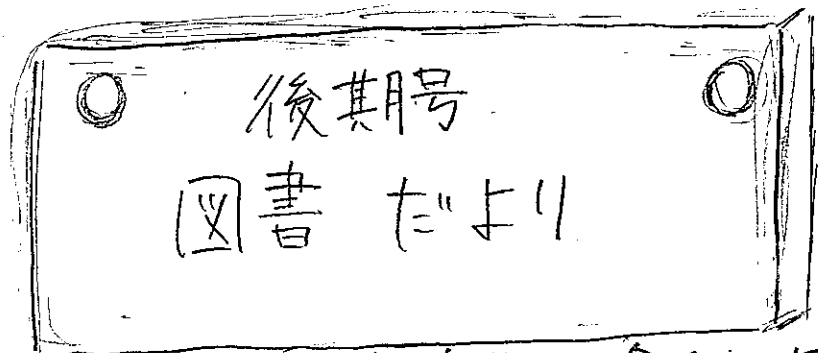 後期号
図書 だより